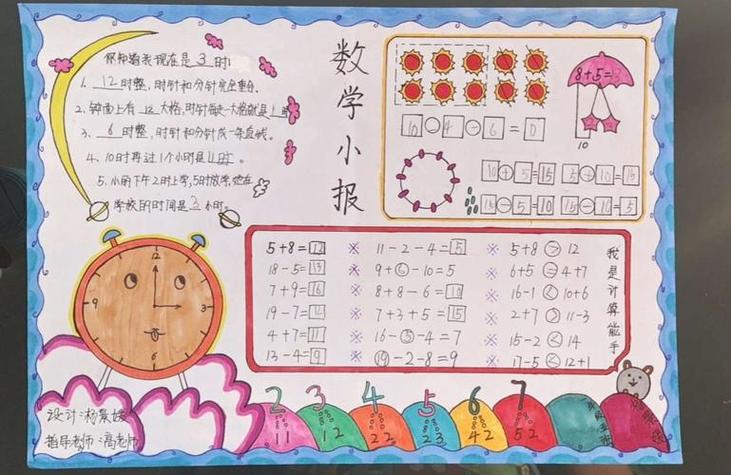 你知道我现在是 3 时!
1. 12 时整，时针和分针完全重合。
2. 钟面上有 12 大格，时针每走一大格就是1时
3. 6 时整，时针和分针成一条直线。
4. 10时再过1个小时是11时。
5. 小丽下午2时上学，5时放学，她在
学校的时间是 3 小时。
数学小报
8+5=
10
10 - 4 - 6 = 0
10 + 5 = 15 5 + 10 = 15
15 - 5 = 10 15 - 10 = 5
5+8=13 ※ 11-2-4=5 ※ 5+8 > 12
18-5=13 ※ 9+6-10=5 ※ 6+5 = 4+7
7+9=16 ※ 8+8-6=10 ※ 16-1 < 10+6
19-7=12 ※ 7+3+5=15 ※ 2+7 > 11-3
4+7=11 ※ 16-5-4=7 ※ 15-2 < 14
13-4=9 ※ 19-2-8=9 ※ 17-5 < 12+1
我是计算能手
12
3
6
9
设计:杨
指导老师:高老师
2 3 4 5 6 7
11 12 22 23 42 52